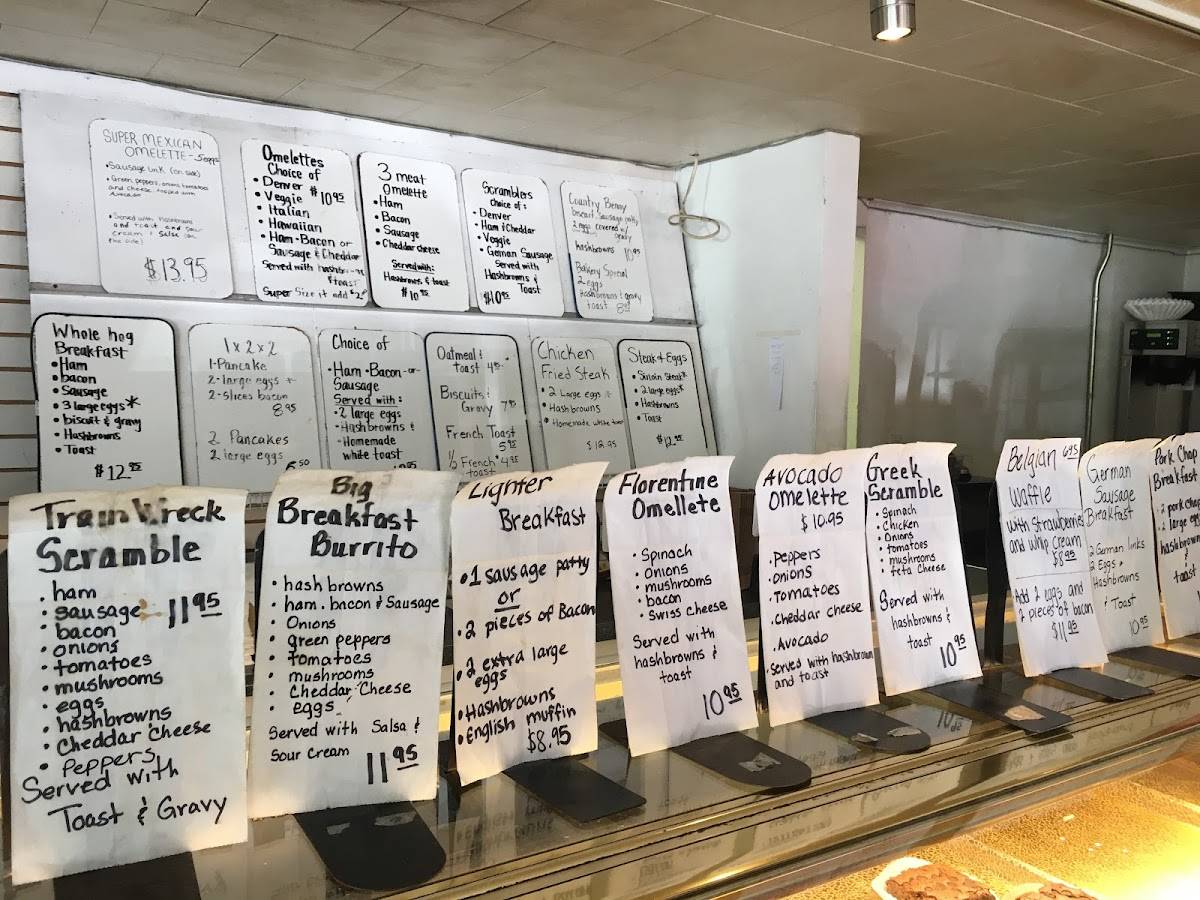 SUPER MEXICAN
OMELETTE - 5eggs
• Sausage Link (on side)
• Green peppers, onions, tomatoes
and cheese topped with
Avocado
• Served with Hashbrowns
and toast and sour
cream & Salsa (on
the side)
$13.95
Omelettes
Choice of
• Denver $10.95
• Veggie
• Italian
• Hawaiian
• Ham-Bacon or
Sausage & Cheddar
Served with hashbrowns
& toast
Super Size it add $2
3 meat
Omelette
• Ham
• Bacon
• Sausage
• Cheddar cheese
Served with:
Hashbrowns & toast
$10.95
Scramblers
choice of:
• Denver
• Ham & Cheddar
• Veggie
• German Sausage
Served with
Hashbrowns &
Toast
$10.95
Country Benny
biscuit, Sausage patty,
2 eggs covered w/
gravy
hashbrowns 10.95
Bakery Special
2 eggs
Hashbrowns & gravy
toast 8.95
Whole hog
Breakfast
• Ham
• bacon
• Sausage
• 3 large eggs*
• biscuit & gravy
• Hashbrowns
• Toast
$12.95
1x2x2
1-Pancake
2-large eggs +
2-slices bacon
8.95
2 Pancakes
2 large eggs
6.50
Choice of
• Ham • Bacon - or -
Sausage
Served with:
• 2 large eggs
• Hashbrowns &
• Homemade
white toast
Oatmeal &
toast
Biscuits &
Gravy 7.95
French Toast
5.95
1/2 French 4.95
toast
Chicken
Fried Steak
• 2 Large eggs
• Hashbrowns
• Homemade white toast
$12.95
Steak & Eggs
• Sirloin Steak*
• 2 large eggs*
• Hashbrowns
• Toast
$12.95
Train Wreck
Scramble
• ham
• sausage 11.95
• bacon
• onions
• tomatoes
• mushrooms
• eggs
• hashbrowns
• Cheddar Cheese
• Peppers
Served with
Toast & Gravy
Big
Breakfast
Burrito
• hash browns
• ham, bacon & Sausage
• Onions
• green peppers
• tomatoes
• mushrooms
• Cheddar Cheese
• eggs
Served with Salsa &
Sour Cream
11.95
Lighter
Breakfast
• 1 sausage patty
or
• 2 pieces of Bacon
• 2 extra large
eggs
• Hashbrowns
• English muffin
$8.95
Florentine
Omellete
• Spinach
• Onions
• mushrooms
• bacon
• Swiss cheese
Served with
hashbrowns &
toast
10.95
AVOCADO
OMELETTE
$10.95
• PEPPERS
• ONIONS
• TOMATOES
• Cheddar cheese
• AVOCADO
• Served with hashbrown
and toast
Greek
Scramble
• Spinach
• Chicken
• Onions
• tomatoes
• mushrooms
• feta Cheese
Served with
hashbrowns &
toast
10.95
Belgian 6.95
Waffle
with Strawberries
and whip Cream
$8.95
Add 2 eggs and
2 pieces of bacon
$11.95
German
Sausage
Breakfast
2 German links
2 Eggs &
Hashbrowns
& Toast
10.95
Pork Chop
Breakfast
2 pork chop
2 large egg
hashbrown
&
toast